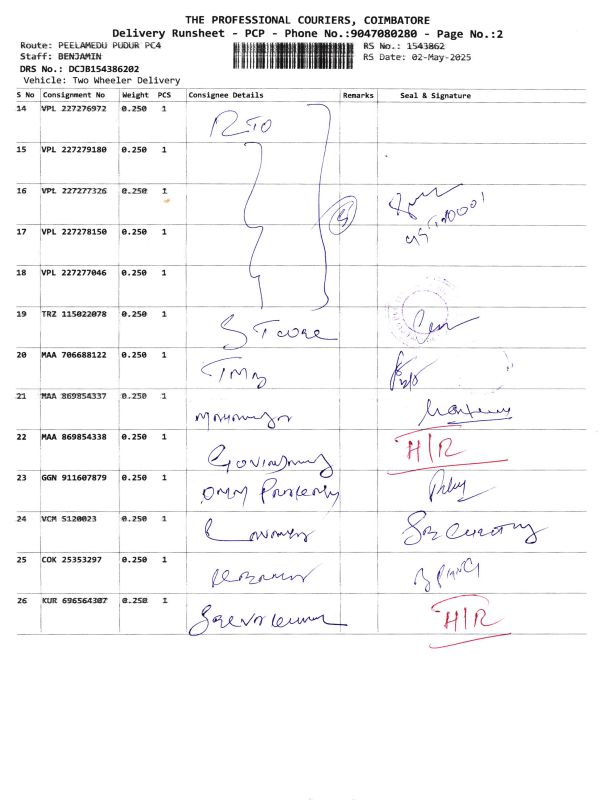 THE PROFESSIONAL COURIERS, COIMBATORE
Delivery Runsheet - PCP - Phone No.:9047080280 - Page No.:2
Route: PEELAMEDU PUDUR PC4
RS No.: 1543862
Staff: BENJAMIN
RS Date: 02-May-2025
DRS No.: DCJB154386202
Vehicle: Two Wheeler Delivery
S No Consignment No Weight PCS Consignee Details Remarks Seal & Signature
14 VPL 227276972 0.250 1 RTO
15 VPL 227279180 0.250 1
16 VPL 227277326 0.250 1
17 VPL 227278150 0.250 1
18 VPL 227277046 0.250 1
19 TRZ 115022078 0.250 1
20 MAA 706688122 0.250 1
21 MAA 869854337 0.250 1
22 MAA 869854338 0.250 1 H/R
23 GGN 911607879 0.250 1
24 VCM 5120023 0.250 1
25 COK 25353297 0.250 1
26 KUR 696564307 0.250 1 H/R